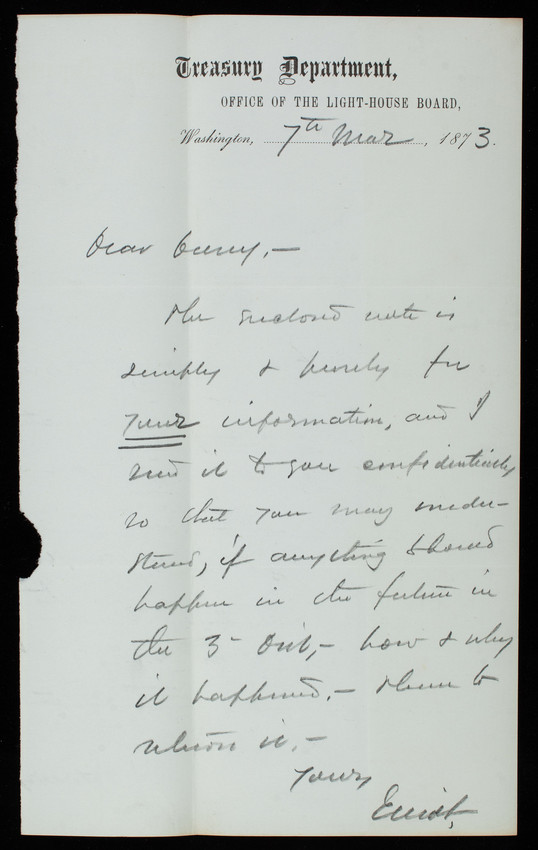 Treasury Department,
OFFICE OF THE LIGHT-HOUSE BOARD,
Washington, 7th Mar, 1873.
Dear Casey, —
The enclosed note is
simply & purely for
your information, and I
send it to you confidentially
so that you may under-
stand, if anything should
happen in the future in
the 3d Dist, — how & why
it happened. — Please to
return it. —
Yours
Elliot,